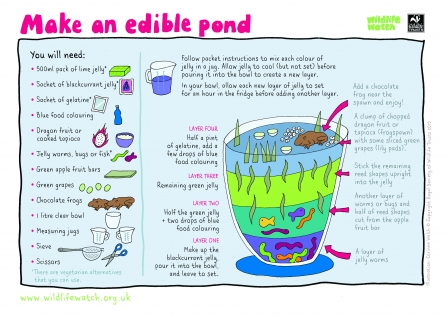 Make an edible pond
wildlife
watch
You will need:
• 500ml pack of lime jelly*
• Sachet of blackcurrant jelly*
• Sachet of gelatine*
• Blue food colouring
• Dragon fruit or
cooked tapioca
• Jelly worms, bugs or fish*
• Green apple fruit bars
• Green grapes
• Chocolate frogs
• 1 litre clear bowl
• Measuring jugs
• Sieve
• Scissors
*There are vegetarian alternatives
that you can use.
Follow packet instructions to mix each colour of
jelly in a jug. Allow jelly to cool (but not set) before
pouring it into the bowl to create a new layer.
In your bowl, allow each new layer of jelly to set
for an hour in the fridge before adding another layer.
LAYER FOUR
Half a pint
of gelatine, add a
few drops of blue
food colouring
LAYER THREE
Remaining green jelly
LAYER TWO
Half the green jelly
+ two drops of blue
food colouring
LAYER ONE
Make up the
blackcurrant jelly,
pour it into the bowl,
and leave to set.
Add a chocolate
frog near the
spawn and enjoy!
A clump of chopped
dragon fruit or
tapioca (frogspawn)
with some sliced green
grapes (lily pads).
Stick the remaining
reed shapes upright
into the jelly
Another layer of
worms or bugs and
half of reed shapes
cut from the apple
fruit bar
A layer of
jelly worms
www.wildlifewatch.org.uk